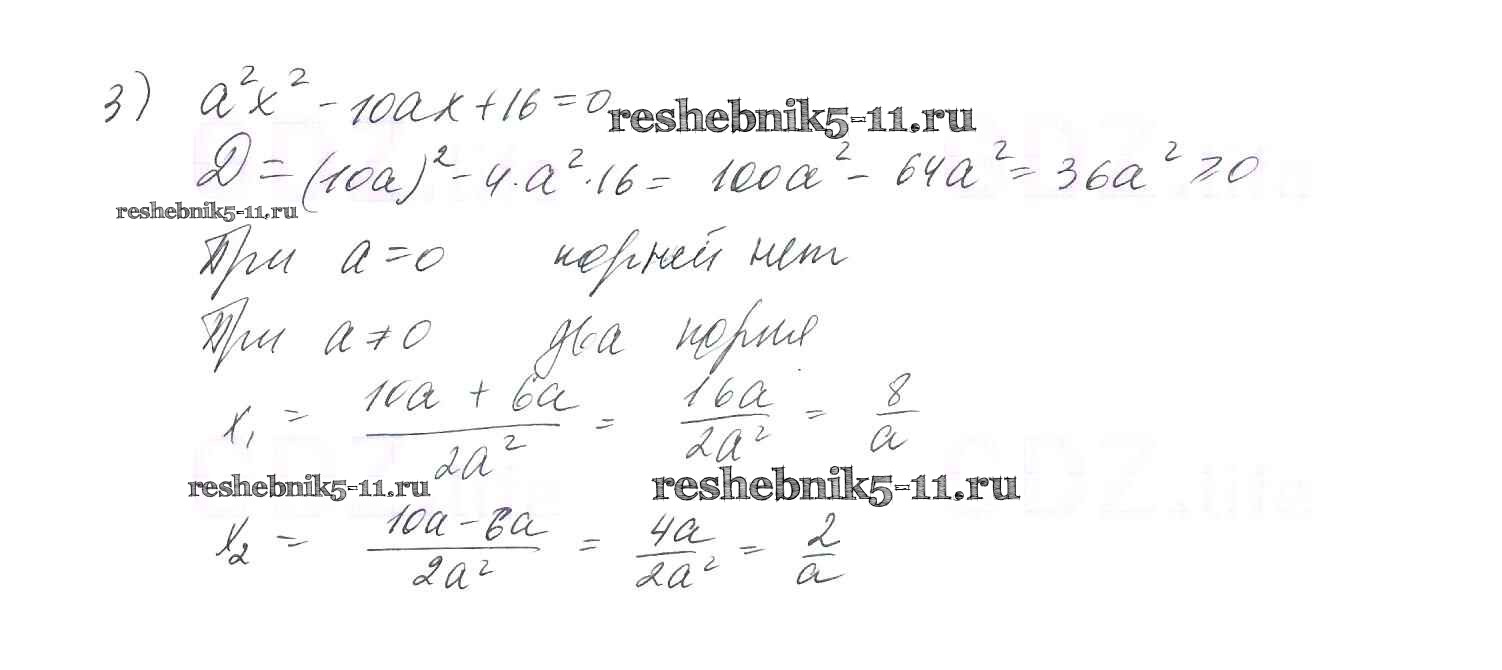 3) a²x² - 10ax + 16 = 0 reshebnik5-11.ru
D = (10a)² - 4·a²·16 = 100a² - 64a² = 36a² ≥ 0
reshebnik5-11.ru
При a = 0 корней нет
При a ≠ 0 два корня
x₁ = (10a + 6a)/(2a²) = 16a/(2a²) = 8/a
reshebnik5-11.ru reshebnik5-11.ru
x₂ = (10a - 6a)/(2a²) = 4a/(2a²) = 2/a